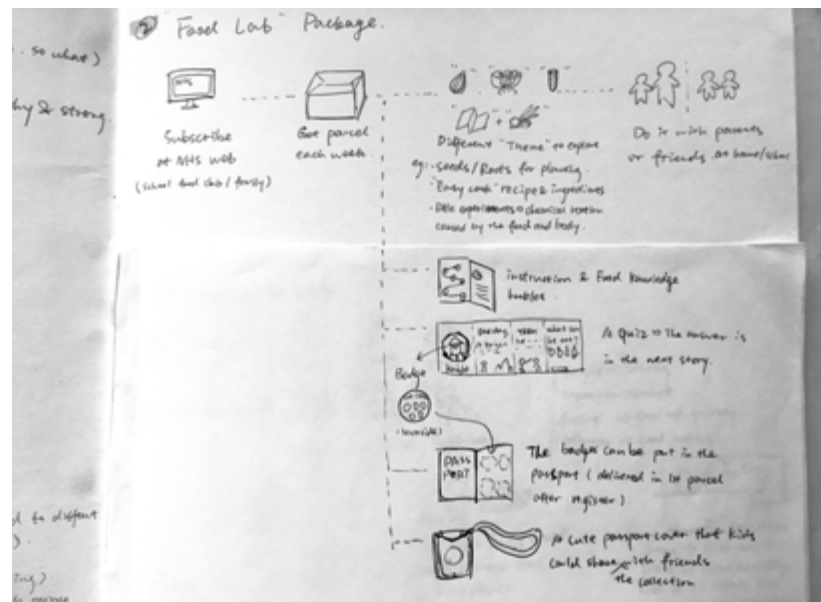 . so what)
hy & strong.
"Food Lab" Package.
NHS
Subscribe
at NHS web
(school food club / family)
Get parcel
each week.
Different "Theme" to explore
eg: . seeds/Roots for planting.
. "Easy cook" recipe & ingredients
. little experiments chemical reaction
caused by the food and body.
Do it with parents
or friends at home/school
instruction & Food knowledge
One day
A knight
then
he
what can
he eat?
knight
A Quiz the answer is
in the next story.
Badge
PASS
PORT
The badges can be put in the
passport (delivered in 1st parcel
after register).
A cute passport cover that kids
could share with friends
the collection